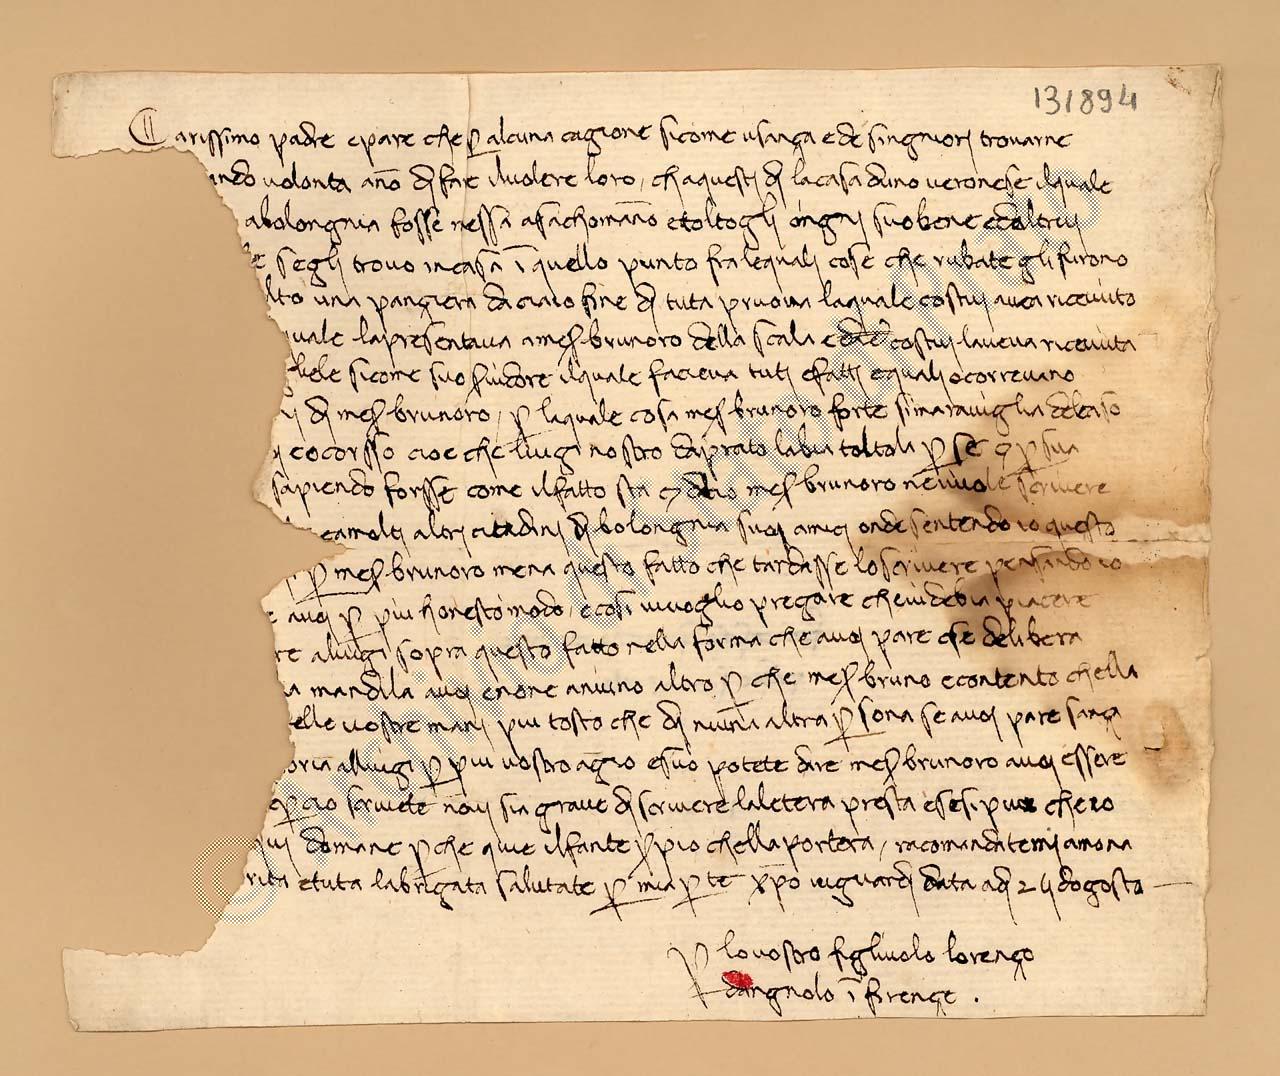 131894
Carissimo padre e pare che p alcuna cagione sicome usança e de singniorj trovarne
ando volonta ano dj fare ilvolere loro, ch aquestj dj lacasa duno veronese ilquale
abolongnia fosse messa asachomano etoltoglj ongnj suobene edaltruj
le seglj trovo incasa i quello punto fralequalj cose che rubate glj furono
olto una pangiera daciaio fine dj tuta pruova laquale costuj avea ricevuto
quale lapresentava a mes brunoro della scala e costuj laveva ricevuta
sicome suo servidore ilquale facieva tutj efattj equalj ocorrevano
dj mes brunoro, p laquale cosa mes brunoro forte simaraviglia delcaso
eocorsso cioe che luigi nostro daprato labia toltola p se o p sua
sapiendo forsse come ilfatto sta dicio mes brunoro nevuole scrivere
camoltj altrj citadinj dj bolongnia suoj amicj onde sentendo io questo
p mes brunoro mena questo fatto che tardasse loscrivere pensando io
e avoj p piu honesto modo, ecosi vivoglio pregare chevidebia piacere
re aluigi sopra questo fatto nella forma che avoj pare esse delibera
a mandila avoj enone aniuno altro p che mes bruno econtento chella
elle vostre manj piu tosto che dj niuna altra p sona se avoj pare sança
oria alluigi p piu vostro agio esuo potete dire mes brunoro avoj essere
p cio scrivete novj sia grave dj scrivere laletera presta esesi puo cheio
quj domane p che quie ilfante propio chellaportera, racomandatemj amona
rita etuta labrigata salutate p mia p te xpo viguardj data adj 24 dogosto
p lovostro figliuolo lorenço
dangnolo i firençe .